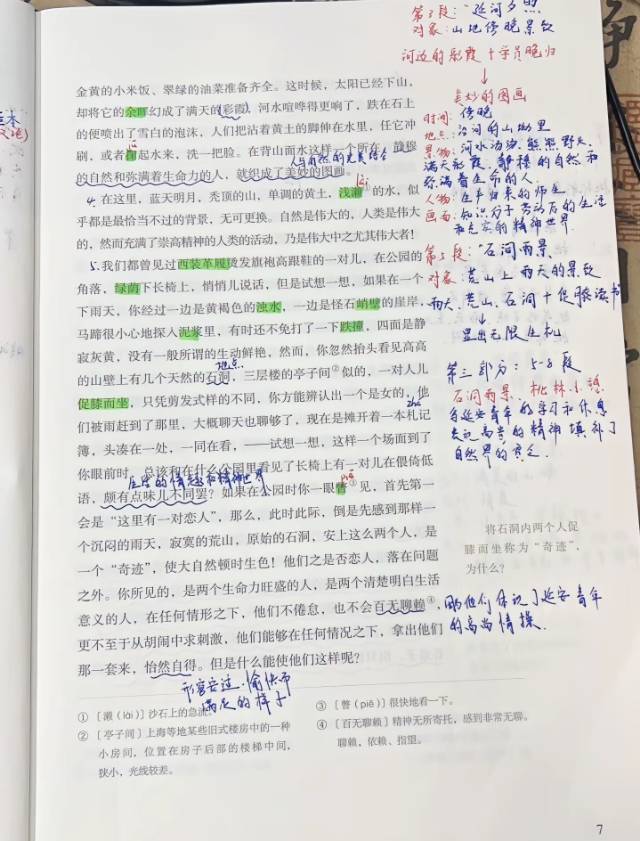 第3段:“延河夕照
对象:山地傍晚景致
河边的彩霞十学员晚归
↓
美妙的图画
时间:傍晚
地点:沿河的山坳里
满天彩霞
人物:生产归来的师生
和充实的精神世界
金黄的小米饭、翠绿的油菜准备齐全。这时候,太阳已经下山,
却将它的余晖幻成了满天的彩霞,河水喧哗得更响了,跌在石上
的便喷出了雪白的泡沫,人们把沾着黄土的脚伸在水里,任它冲
刷,或者掬起水来,洗一把脸。在背山面水这样一个所在,静穆
人与自然的完美结合
的自然和弥满着生命力的人,就织成了美妙的图画。
4.在这里,蓝天明月,秃顶的山,单调的黄土,浅濑的水,似
乎都是最恰当不过的背景,无可更换。自然是伟大的,人类是伟大
的,然而充满了崇高精神的人类的活动,乃是伟大中之尤其伟大者!
5.我们都曾见过西装革履烫发旗袍高跟鞋的一对儿,在公园的
角落,绿荫下长椅上,悄悄儿说话,但是试想一想,如果在一个
下雨天,你经过一边是黄褐色的浊水,一边是怪石峭壁的崖岸,
马蹄很小心地探入泥浆里,有时还不免打了一下跌撞,四面是静
寂灰黄,没有一般所谓的生动鲜艳,然而,你忽然抬头看见高高
地点
的山壁上有几个天然的石洞,三层楼的亭子间②似的,一对人儿
促膝而坐,只凭剪发式样的不同,你方能辨认出一个是女的,他
们被雨赶到了那里,大概聊天也聊够了,现在是摊开着一本札记
簿,头凑在一处,一同在看,——试想一想,这样一个场面到了
你眼前时,总该和在什么公园里看见了长椅上有一对儿在偎倚低
语,颇有点味儿不同罢?如果在公园时你一眼瞥③见,首先第一
会是“这里有一对恋人”,那么,此时此际,倒是先感到那样一
个沉闷的雨天,寂寞的荒山,原始的石洞,安上这么两个人,是
一个“奇迹”,使大自然顿时生色!他们之是否恋人,落在问题
之外。你所见的,是两个生命力旺盛的人,是两个清楚明白生活
意义的人,在任何情形之下,他们不倦怠,也不会百无聊赖④,
更不至于从胡闹中求刺激,他们能够在任何情况之下,拿出他们
那一套来,怡然自得。但是什么能使他们这样呢?
第5段:“石洞雨景
对象:荒山上雨天的景致
雨天、荒山、石洞十促膝读书
↓
显出无限生机
第二部分:5-8段
石洞雨景 桃林小憩
写延安青年的学习和休息
表现高贵的精神填补了
自然界的贫乏
将石洞内两个人促
膝而坐称为“奇迹”,
为什么?
因他们体现了延安青年
的高尚情操
形容安适、愉快而
满足的样子
①〔濑(lài)〕沙石上的急流。
②〔亭子间〕上海等地某些旧式楼房中的一种
小房间,位置在房子后部的楼梯中间,
狭小,光线较差。
③〔瞥(piē)〕很快地看一下。
④〔百无聊赖〕精神无所寄托,感到非常无聊。
聊赖,依赖、指望。
7